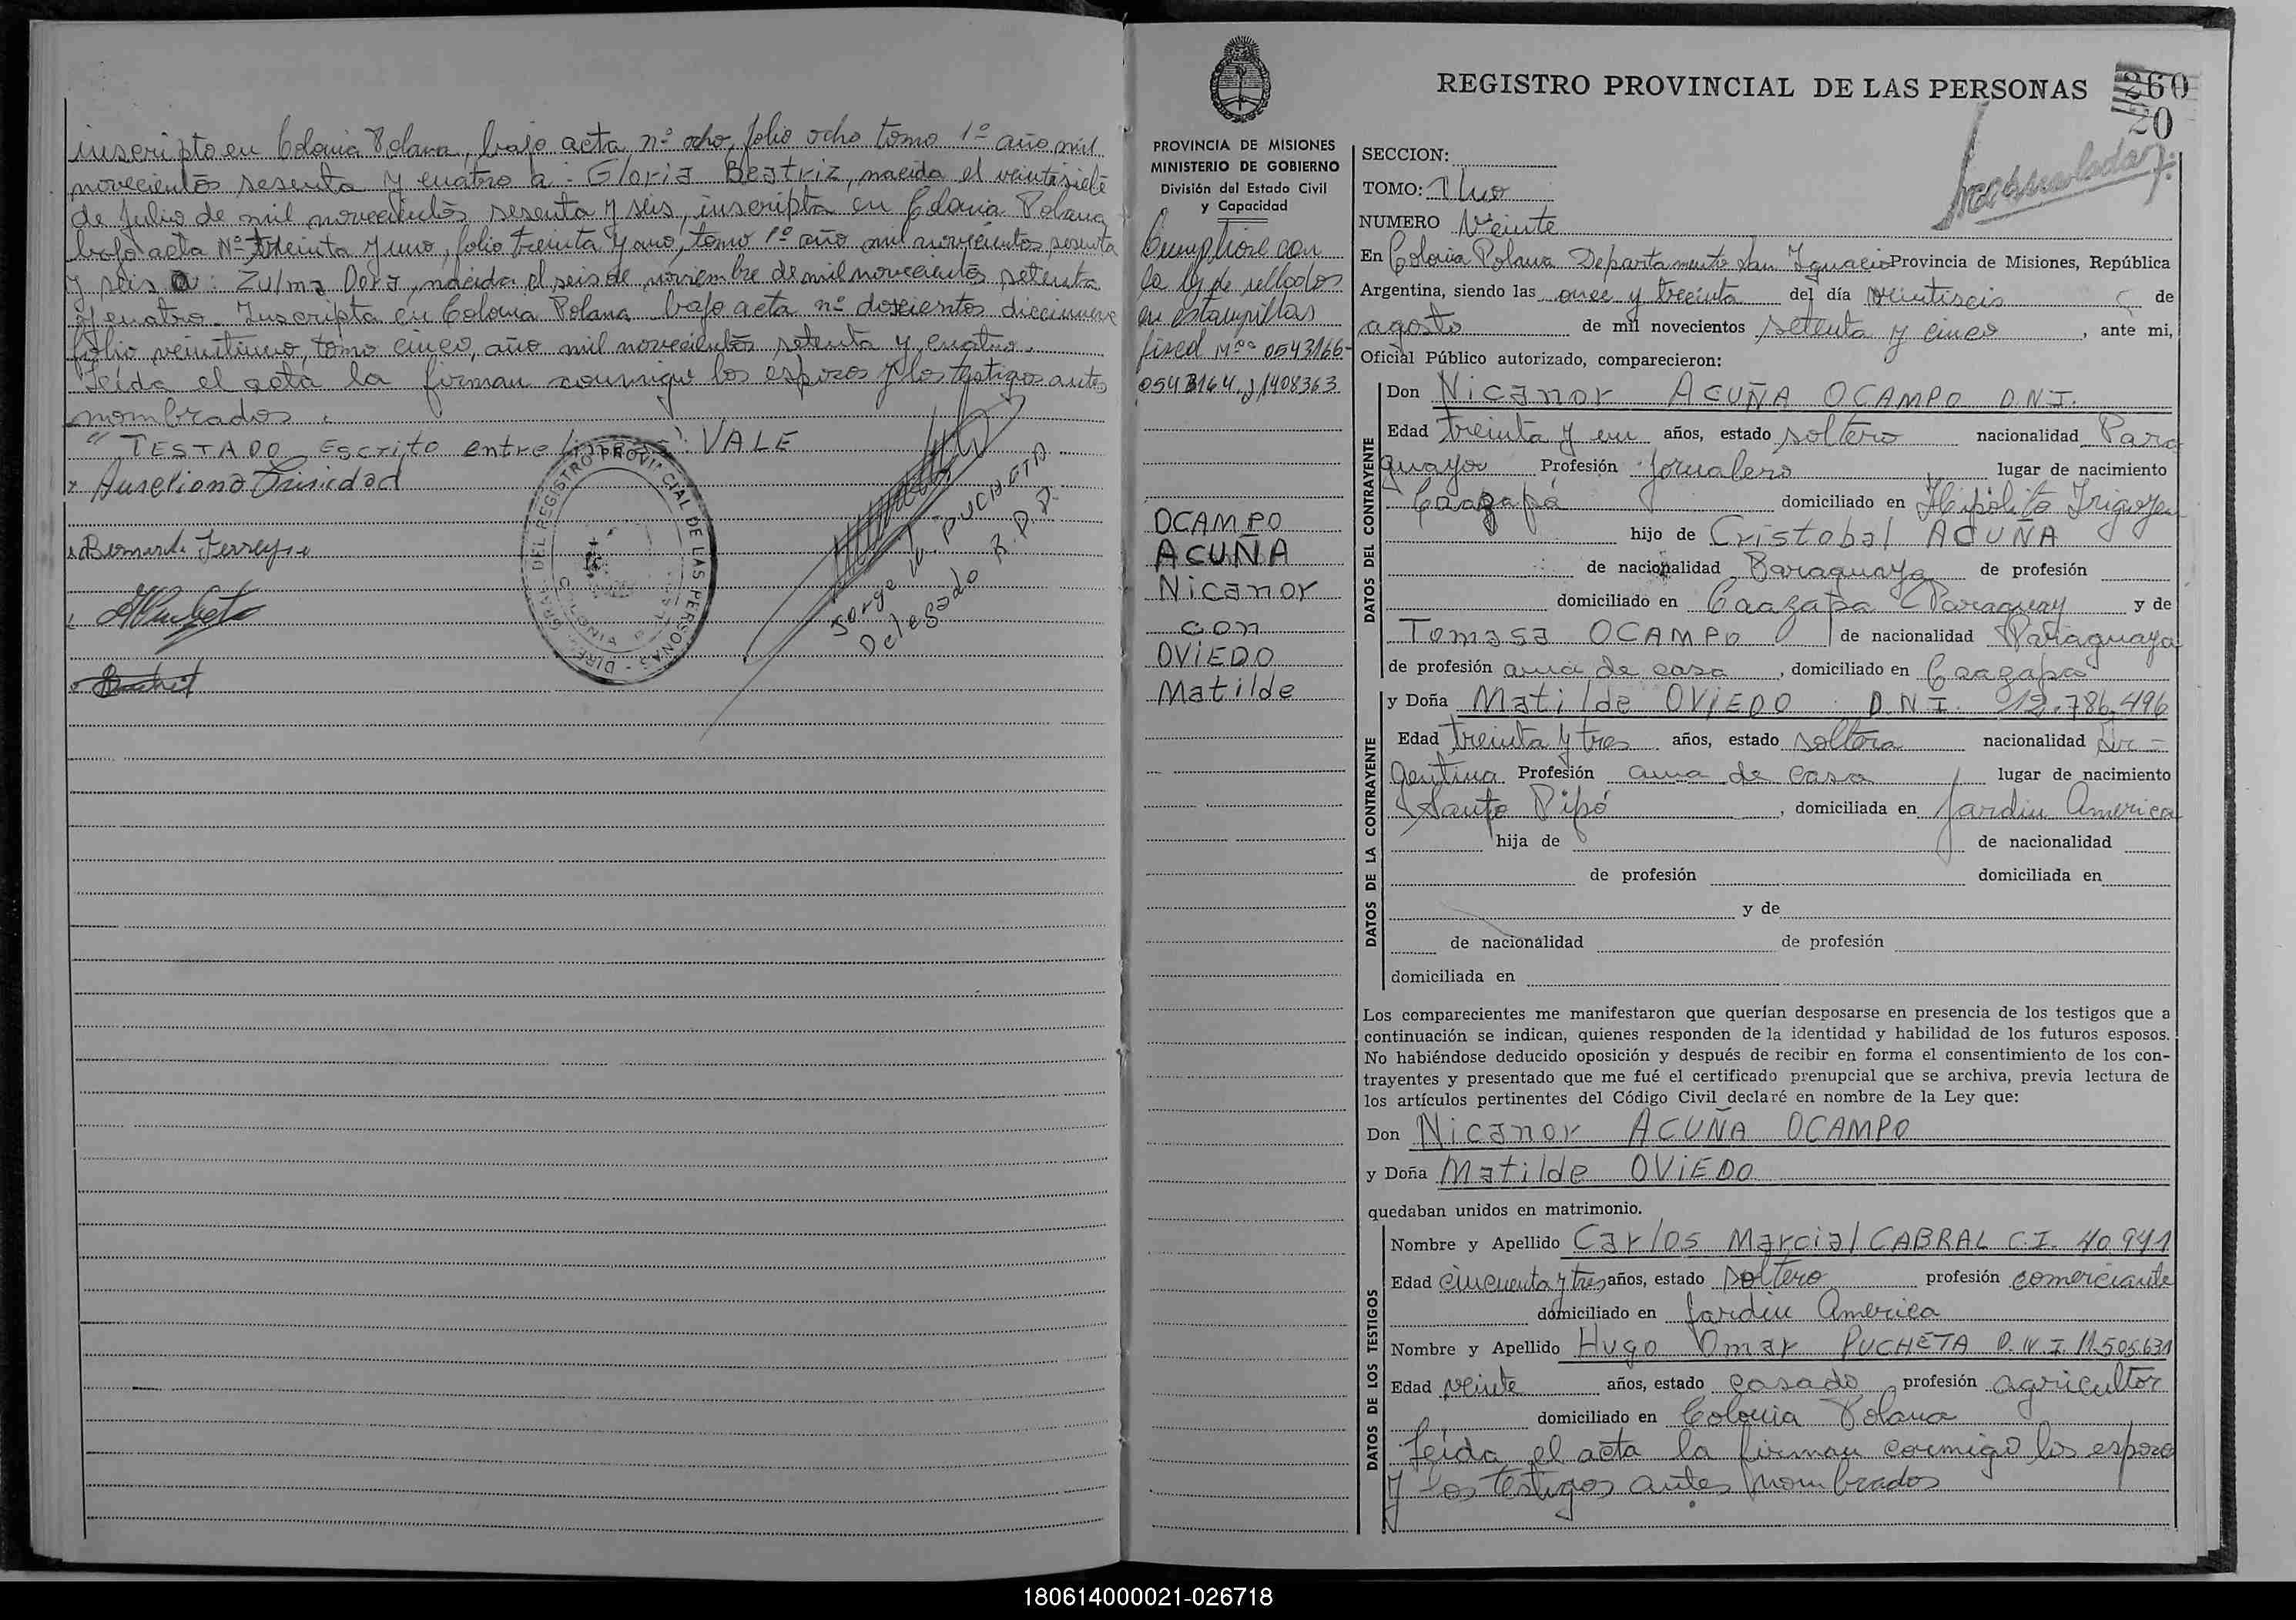 inscripto en Colonia Polana, bajo acta nº ocho, folio ocho tomo 1º año mil
novecientos sesenta y cuatro a: Gloria Beatriz, nacida el veintisiete
de julio de mil novecientos sesenta y seis, inscripta en Colonia Polana
bajo acta Nº treinta y uno, folio treinta y uno, tomo 1º año mil novecientos sesenta
y seis a: Zulma Dora, nacida el seis de noviembre de mil novecientos setenta
y cuatro. Inscripta en Colonia Polana bajo acta nº doscientos diecinueve
folio veintiuno, tomo cinco, año mil novecientos setenta y cuatro.
Leída el acta la firman conmigo los esposos y los testigos antes
nombrados.
"TESTADO Escrito entre VALE
Aureliana Trinidad
DIRE GRAL DEL REGISTRO PROVINCIAL DE LAS PERSONAS
Jorge PUCHETA
Delegado R.P.P.
PROVINCIA DE MISIONES
MINISTERIO DE GOBIERNO
División del Estado Civil
y Capacidad
Cumplióse con
la ley de sellados
en estampillas
fiscal Nºs 0543166-
0543164 y 1408363
OCAMPO
ACUÑA
Nicanor
con
OVIEDO
Matilde
REGISTRO PROVINCIAL DE LAS PERSONAS
260
20
SECCION:
TOMO: Uno
NUMERO Veinte
En Colonia Polana Departamento San Ignacio Provincia de Misiones, República
Argentina, siendo las once y treinta del día veintiseis de
agosto de mil novecientos setenta y cinco, ante mi,
Oficial Público autorizado, comparecieron:
DATOS DEL CONTRAYENTE
Don Nicanor ACUÑA OCAMPO D.N.I.
Edad treinta y un años, estado soltero nacionalidad Para
guayo Profesión Jornalero lugar de nacimiento
Caazapá domiciliado en Hipólito Irigoyen
hijo de Cristobal ACUÑA
de nacionalidad Paraguaya de profesión
domiciliado en Caazapa Paraguay y de
Tomasa OCAMPO de nacionalidad Paraguaya
de profesión ama de casa, domiciliado en Caazapa
DATOS DE LA CONTRAYENTE
y Doña Matilde OVIEDO D.N.I. 12.786.496
Edad treinta y tres años, estado soltera nacionalidad Ar-
gentina Profesión ama de casa lugar de nacimiento
Santo Pipó, domiciliada en Jardin America
hija de de nacionalidad
de profesión domiciliada en
y de
de nacionalidad de profesión
domiciliada en
Los comparecientes me manifestaron que querían desposarse en presencia de los testigos que a
continuación se indican, quienes responden de la identidad y habilidad de los futuros esposos.
No habiéndose deducido oposición y después de recibir en forma el consentimiento de los con-
trayentes y presentado que me fué el certificado prenupcial que se archiva, previa lectura de
los artículos pertinentes del Código Civil declaré en nombre de la Ley que:
Don Nicanor ACUÑA OCAMPO
y Doña Matilde OVIEDO
quedaban unidos en matrimonio.
DATOS DE LOS TESTIGOS
Nombre y Apellido Carlos Marcial CABRAL C.I. 40.941
Edad cincuenta y tres años, estado soltero profesión comerciante
domiciliado en Jardin America
Nombre y Apellido Hugo Omar PUCHETA D.N.I. 11.505.631
Edad veinte años, estado casado profesión agricultor
domiciliado en Colonia Polana
Leída el acta la firman conmigo los esposo
y los testigos antes nombrados
180614000021-026718